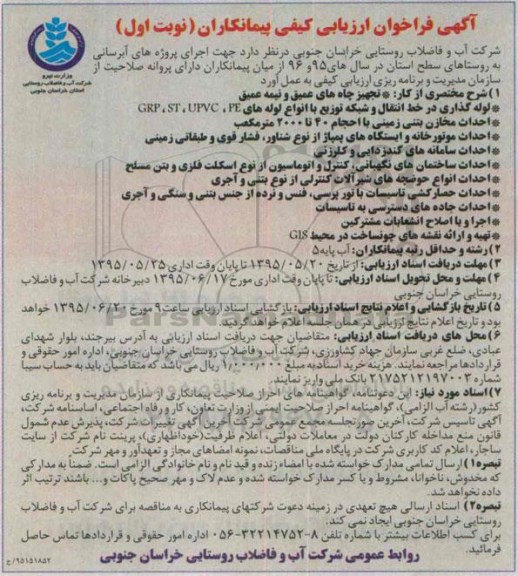 آگهی فراخوان ارزیابی کیفی پیمانکاران (نوبت اول)
وزارت نیرو
شرکت آب و فاضلاب روستایی
استان خراسان جنوبی
شرکت آب و فاضلاب روستایی خراسان جنوبی درنظر دارد جهت اجرای پروژه های آبرسانی
به روستاهای سطح استان در سال های ۹۵و ۹۶ از میان پیمانکاران دارای پروانه صلاحیت از
سازمان مدیریت و برنامه ریزی ارزیابی کیفی به عمل آورد
۱) شرح مختصری از کار: * تجهیز چاه های عمیق و نیمه عمیق
* لوله گذاری در خط انتقال و شبکه توزیع با انواع لوله های GRP ، ST ، UPVC ، PE
* احداث مخازن بتنی زمینی با احجام ۴۰ تا ۲۰۰۰ مترمکعب
* احداث موتورخانه و ایستگاه های پمپاژ از نوع شناور، فشار قوی و طبقاتی زمینی
* احداث سامانه های گندزدایی و کلرزنی
* احداث ساختمان های نگهبانی، کنترل و اتوماسیون از نوع اسکلت فلزی و بتن مسلح
* احداث انواع حوضچه های شیرآلات کنترلی از نوع بتنی و آجری
* احداث حصارکشی تاسیسات با تور پرسی، فنس و نرده از جنس بتنی و سنگی و آجری
* احداث جاده های دسترسی به تاسیسات
* اجرا و یا اصلاح انشعابات مشترکین
* تهیه و ارائه نقشه های چونساخت در محیط GIS
۲) رشته و حداقل رتبه پیمانکاران: آب پایه۵
۳) مهلت دریافت اسناد ارزیابی: از تاریخ ۱۳۹۵/۰۵/۲۰ تا پایان وقت اداری ۱۳۹۵/۰۵/۲۵
۴) مهلت و محل تحویل اسناد ارزیابی: تا پایان وقت اداری مورخ ۱۳۹۵/۰۶/۱۷ دبیرخانه شرکت آب و فاضلاب
روستایی خراسان جنوبی
۵) تاریخ بازگشایی و اعلام نتایج اسناد ارزیابی: بازگشایی اسناد ارزیابی ساعت ۹ مورخ ۱۳۹۵/۰۶/۲۰ خواهد
بود و تاریخ اعلام نتایج ارزیابی در همان جلسه اعلام خواهد گردید.
۶) محل های دریافت اسناد ارزیابی: متقاضیان جهت دریافت اسناد ارزیابی به آدرس بیرجند، بلوار شهدای
عبادی، ضلع غربی سازمان جهاد کشاورزی، شرکت آب و فاضلاب روستایی خراسان جنوبی، اداره امور حقوقی و
قراردادها مراجعه نمایند. هزینه خرید اسناد به مبلغ ۱,۰۰۰,۰۰۰ ریال می باشد که متقاضیان باید به حساب سیبا
شماره ۲۱۷۵۲۱۲۱۹۷۰۰۳ بانک ملی واریز نمایند
۷) اسناد مورد نیاز: این دعوتنامه، گواهینامه های احراز صلاحیت پیمانکاری از سازمان مدیریت و برنامه ریزی
کشور(رشته آب الزامی)، گواهینامه احراز صلاحیت ایمنی از وزارت تعاون، کار و رفاه اجتماعی، اساسنامه شرکت،
آگهی تاسیس شرکت، آخرین صورتجلسه مجمع عمومی شرکت آخرین آگهی تغییرات شرکت، پذیرش عدم شمول
قانون منع مداخله کارکنان دولت در معاملات دولتی، اعلام ظرفیت(خوداظهاری)، پرینت نام شرکت از سایت
ساجار، اعلام کد کاربری شرکت در پایگاه ملی مناقصات، نمونه امضاهای مجاز و تعهدآور و مهر شرکت.
تبصره۱) ارسال تمامی مدارک خواسته شده با امضاء زنده و قید نام و نام خانوادگی الزامی است. ضمنا به مدارکی
که مخدوش، ناخوانا، مشروط و یا کسر مدارک خواسته شده و عدم لاک و مهر صحیح پاکات و... باشند ترتیب اثر
داده نخواهد شد.
تبصره۲) اسناد ارسالی هیچ تعهدی در زمینه دعوت شرکتهای پیمانکاری به مناقصه برای شرکت آب و فاضلاب
روستایی خراسان جنوبی ایجاد نمی کند.
برای کسب اطلاعات بیشتر با شماره تلفن ۸-۳۲۲۱۴۷۵۲-۰۵۶ اداره امور حقوقی و قراردادها تماس حاصل
فرمائید.
روابط عمومی شرکت آب و فاضلاب روستایی خراسان جنوبی
۹۵۱۵۱۸۵۲/ج